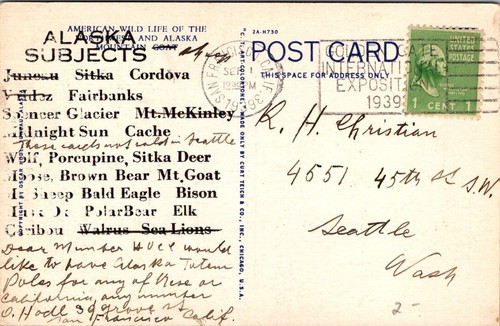 AMERICAN WILD LIFE OF THE
NORTHWEST AND ALASKA
MOUNTAIN GOAT
ALASKA
SUBJECTS
Juneau Sitka Cordova
Valdez Fairbanks
Spencer Glacier Mt. McKinley
Midnight Sun Cache
These cards not sold in Seattle
Wolf, Porcupine, Sitka Deer
Moose, Brown Bear Mt. Goat
Mt Sheep Bald Eagle Bison
Polar Bear Elk
Caribou Walrus Sea Lions
Dear Member would
like to have Alaska Totem
Poles for any of these or
California, any number
O. Hodl 39 grove st
San Francisco Calif.
C. T. ART-COLORTONE MADE ONLY BY CURT TEICH & CO., INC., CHICAGO, U.S.A.
2A-H730
POST CARD
THIS SPACE FOR ADDRESS ONLY
SAN FRANCISCO CALIF.
SEP
1938
GOLDEN GATE
INTERNATIONAL
EXPOSITION
1939
UNITED STATES
POSTAGE
1 CENT 1
R. H. Christian
4551 45th St S.W.
Seattle
Wash
2-